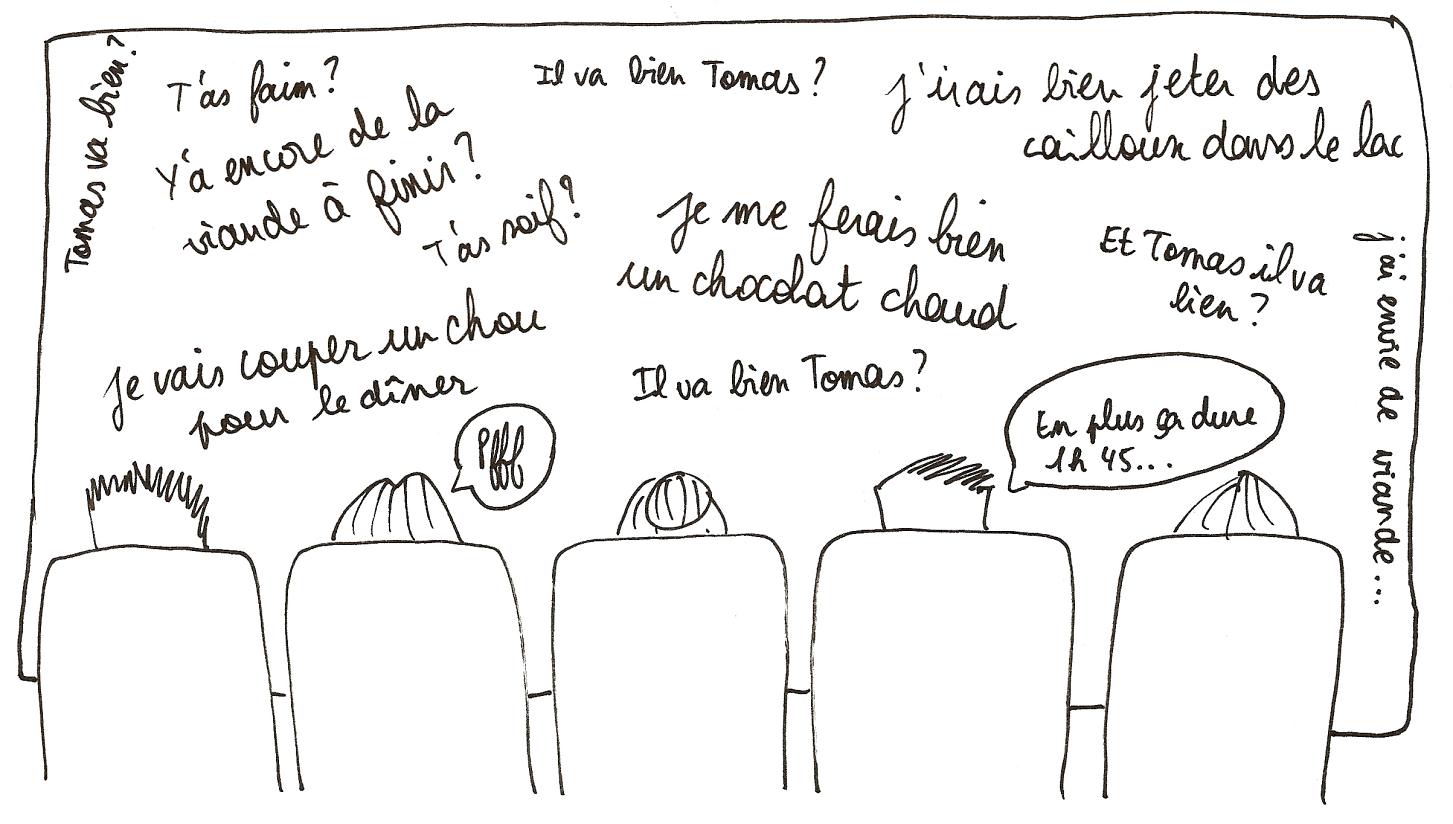 Tomas va bien?
T'as faim?
Y'a encore de la
viande à finir?
T'as soif?
Il va bien Tomas?
j'irais bien jeter des
cailloux dans le lac
Je me ferais bien
un chocolat chaud
Et Tomas il va
bien?
j'ai envie de viande...
Je vais couper un chou
pour le dîner
Il va bien Tomas?
Pfff
En plus ça dure
1h 45...